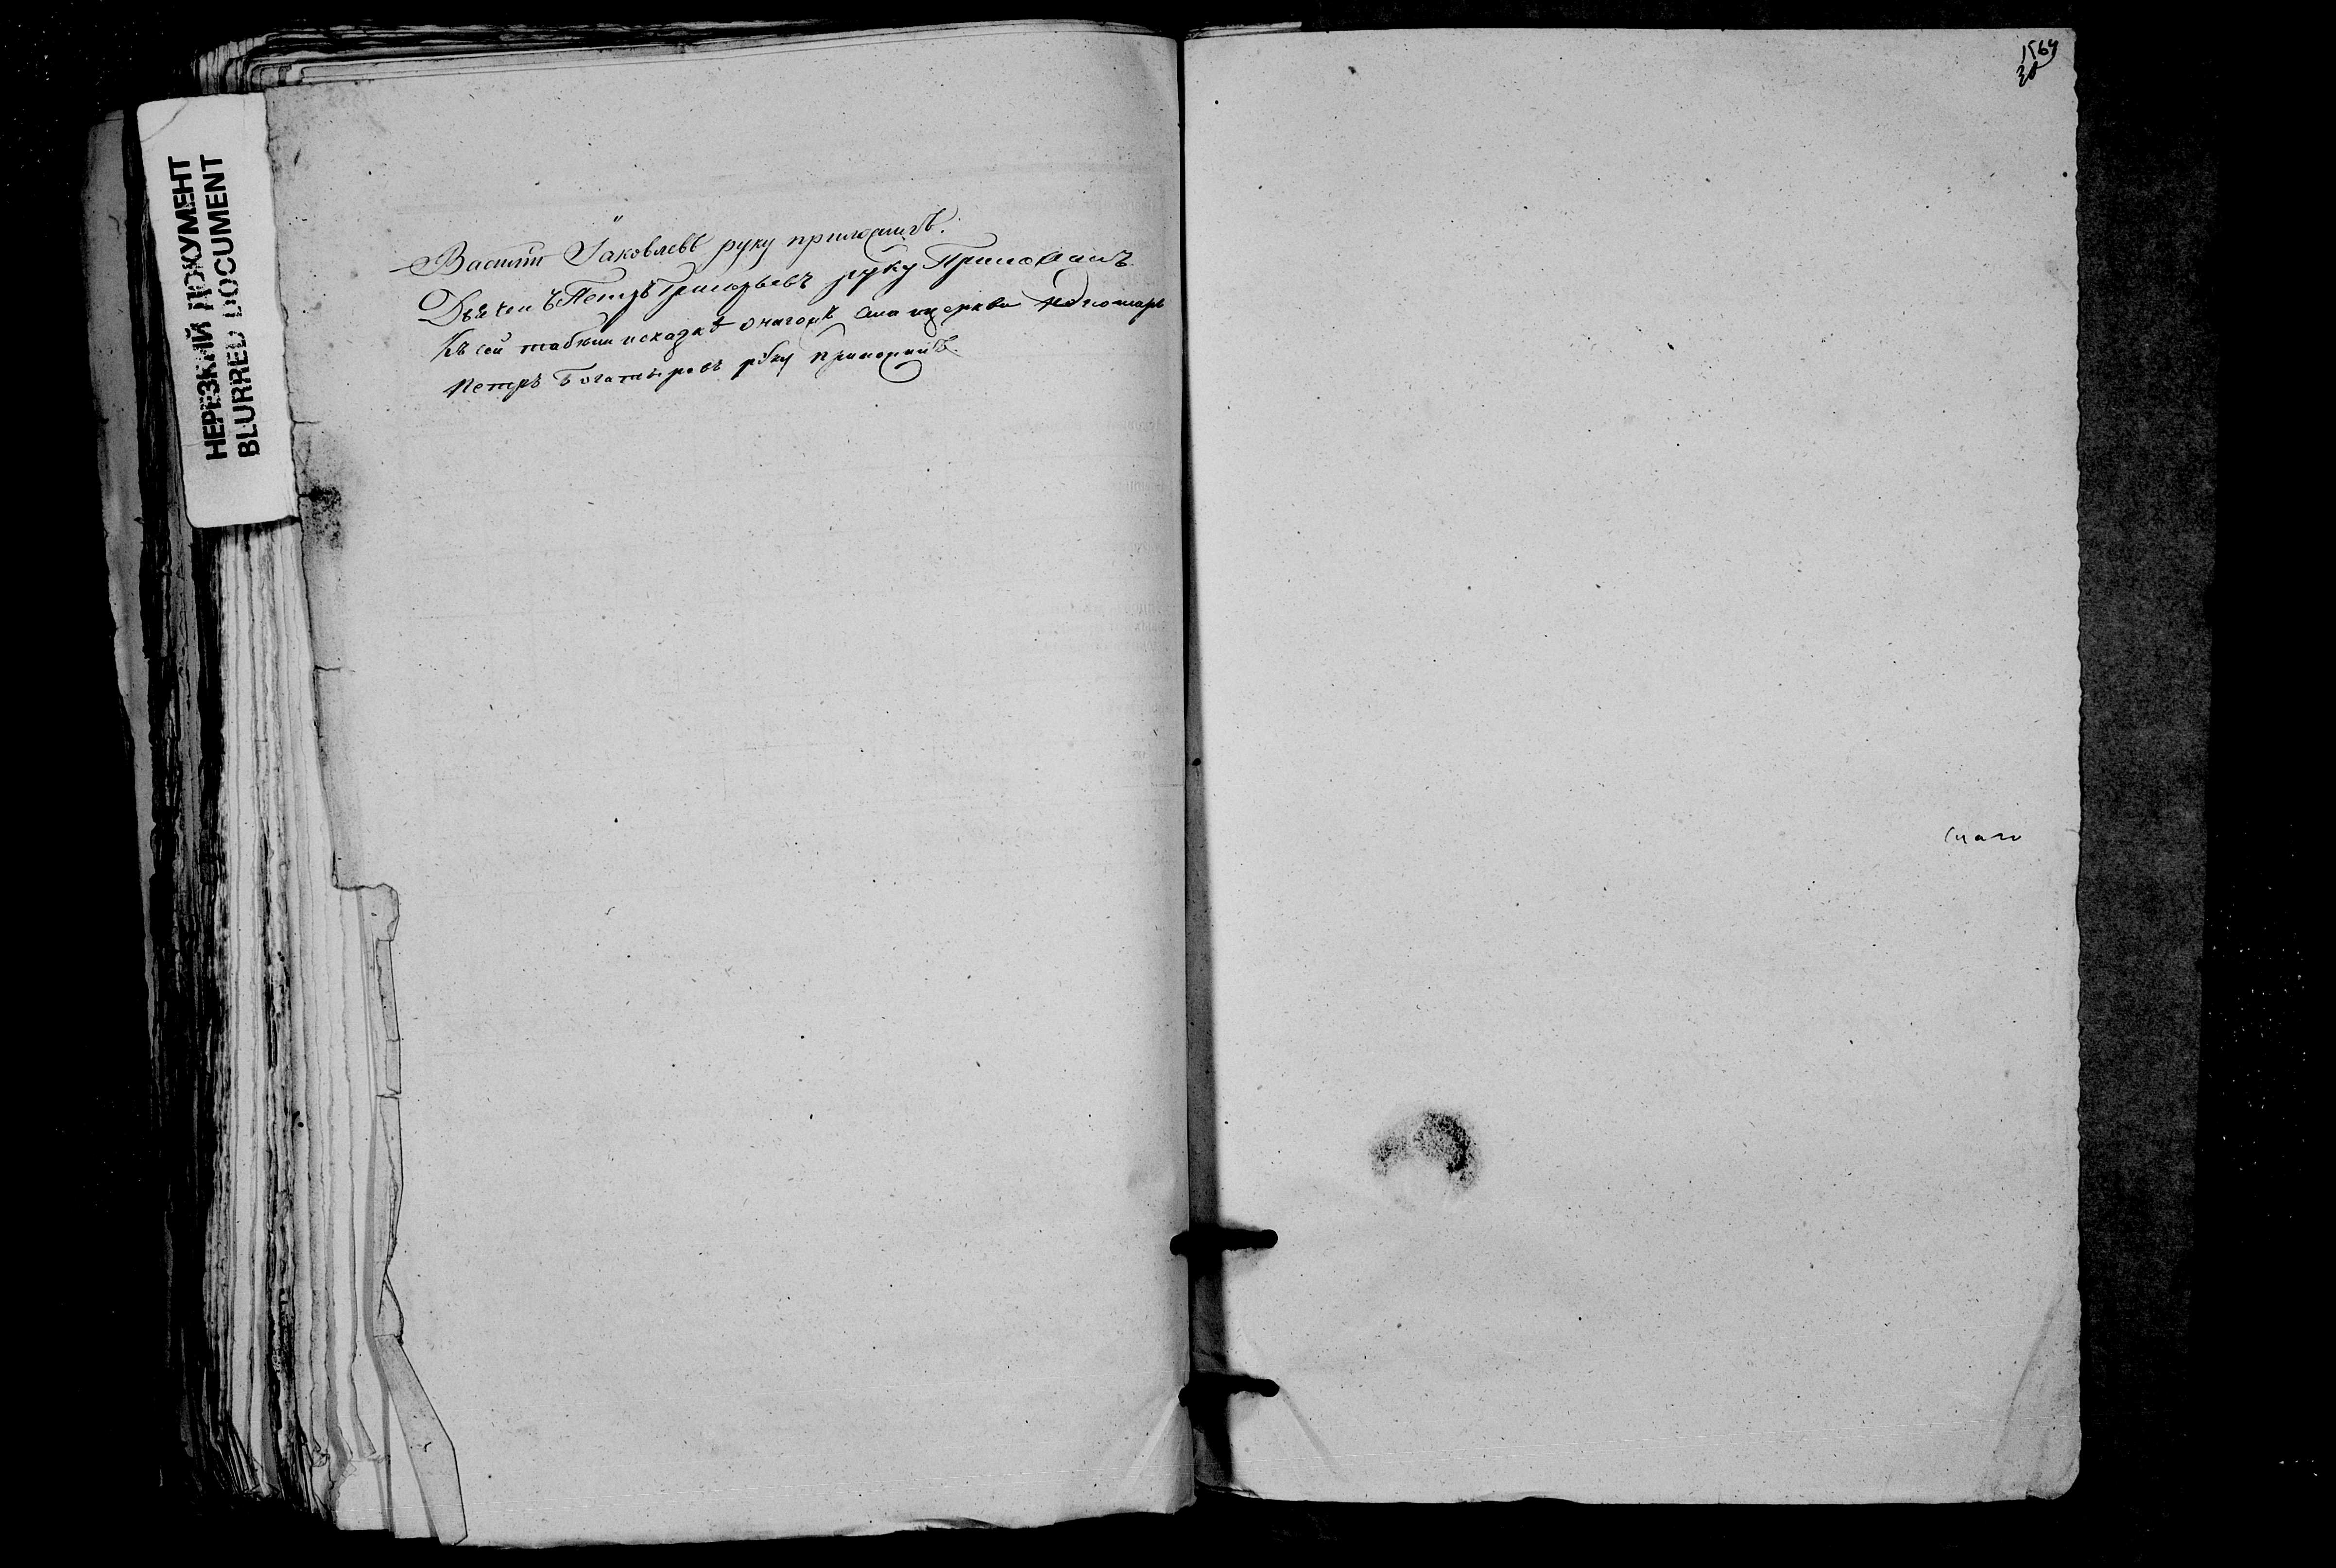 НЕРЕЗКИЙ ДОКУМЕНТ
BLURRED DOCUMENT
Василий Іаковлевъ руку приложилъ.
Дьячекъ Петръ Григорьевъ руку Приложилъ
Къ сей ревижской сказкѣ церкви пономарь
Петръ Богатыревъ руку приложилъ.
1569